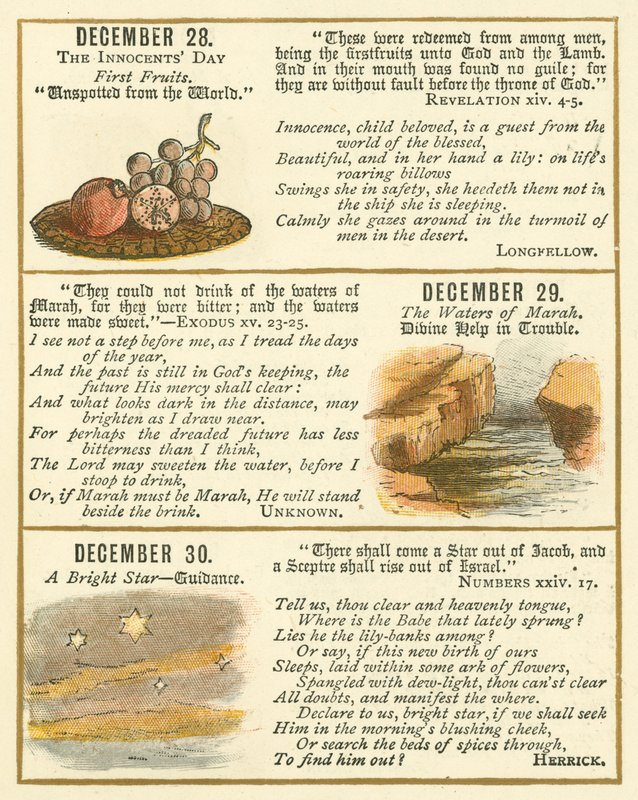 DECEMBER 28.
THE INNOCENTS' DAY
First Fruits.
"Unspotted from the World."
"These were redeemed from among men,
being the firstfruits unto God and the Lamb.
And in their mouth was found no guile; for
they are without fault before the throne of God."
REVELATION xiv. 4-5.
Innocence, child beloved, is a guest from the
world of the blessed,
Beautiful, and in her hand a lily: on life's
roaring billows
Swings she in safety, she heedeth them not in
the ship she is sleeping.
Calmly she gazes around in the turmoil of
men in the desert.
LONGFELLOW.
"They could not drink of the waters of
Marah, for they were bitter; and the waters
were made sweet."—EXODUS xv. 23-25.
I see not a step before me, as I tread the days
of the year,
And the past is still in God's keeping, the
future His mercy shall clear:
And what looks dark in the distance, may
brighten as I draw near.
For perhaps the dreaded future has less
bitterness than I think,
The Lord may sweeten the water, before I
stoop to drink,
Or, if Marah must be Marah, He will stand
beside the brink. UNKNOWN.
DECEMBER 29.
The Waters of Marah.
Divine Help in Trouble.
DECEMBER 30.
A Bright Star—Guidance.
"There shall come a Star out of Jacob, and
a Sceptre shall rise out of Israel."
NUMBERS xxiv. 17.
Tell us, thou clear and heavenly tongue,
Where is the Babe that lately sprung?
Lies he the lily-banks among?
Or say, if this new birth of ours
Sleeps, laid within some ark of flowers,
Spangled with dew-light, thou can'st clear
All doubts, and manifest the where.
Declare to us, bright star, if we shall seek
Him in the morning's blushing cheek,
Or search the beds of spices through,
To find him out? HERRICK.